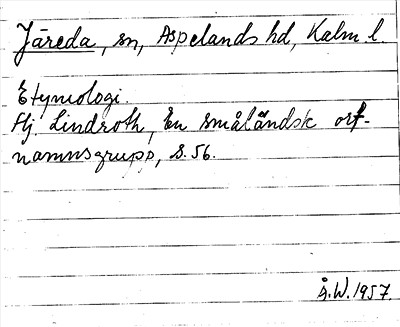 Järeda, sn, Aspelands hd, Kalm. l.
Etymologi.
Hj. Lindroth, En småländsk ort-
namnsgrupp, s. 56.
Å.W. 1957.